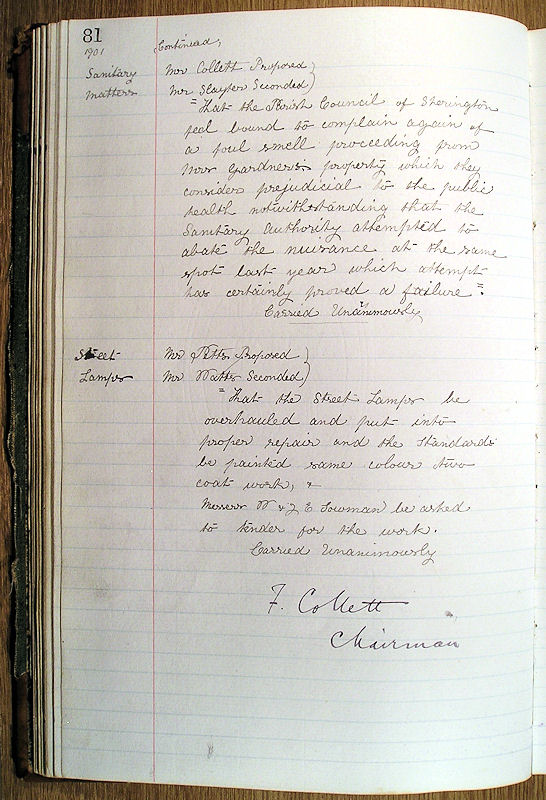 81
1901
Continued,
Sanitary Mr Collett Proposed )
Matters Mr Slayter Seconded )
"That the Parish Council of Sherington
feel bound to complain again of
a foul smell proceeding from
Mrs Gardners property which they
consider prejudicial to the public
health notwithstanding that the
Sanitary Authority attempted to
abate the nuisance at the same
spot last year which attempt
has certainly proved a failure".
Carried Unanimously
Street Mr Pitts Proposed )
Lamps Mr Watts Seconded )
"That the Street Lamps be
overhauled and put into
proper repair and the standards
be painted same colour two
coat work, &
Messrs W & J E Sowman be asked
to tender for the work.
Carried Unanimously
F. Collett
Chairman